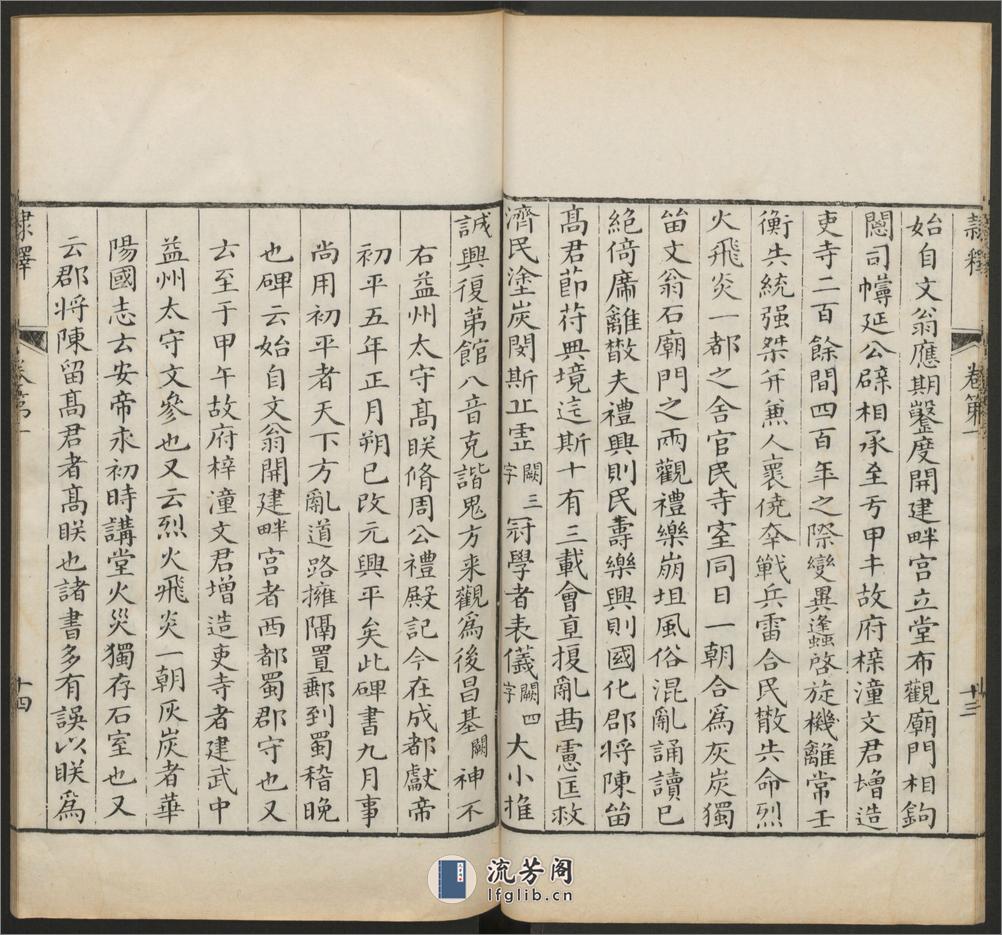 隸釋 卷第一 十三
始自文翁應期鑿度開建畔宫立堂布觀廟門相鉤
閣司幃延公辟相承至亐甲午故府梓潼文君增造
吏寺二百餘間四百年之際變異蠭起旋機離常玉
衡失統强桀并兼人裏僥夲戰兵雷合民散失命烈
火飛炎一都之舍官民寺室同日一朝合爲灰炭獨
畱文翁石廟門之兩觀禮樂崩坦風俗混亂誦讀已
絶倚席離散夫禮興則民壽樂興則國化郡將陳畱
髙君節符典境迄斯十有三載會直擾亂
濟民塗炭閔斯
闕三字
冠學者表儀
闕四字
大小推
誠興復第館八音克諧鬼方来觀爲後昌基
闕
神不
右益州太守髙眹脩周公禮殿記今在成都獻帝
初平五年正月朔已改元興平矣此碑書九月事
尚用初平者天下方亂道路擁隔置郵到蜀稽晚
也碑云始自文翁開建畔宫者西都蜀郡守也又
云至于甲午故府梓潼文君增造吏寺者建武中
益州太守文參也又云烈火飛炎一朝灰炭者華
陽國志云安帝永初時講堂火災獨存石室也又
云郡將陳留髙君者髙眹也諸書多有誤以眹爲
隸釋 卷第一 十四
流芳阁
lfglib.cn